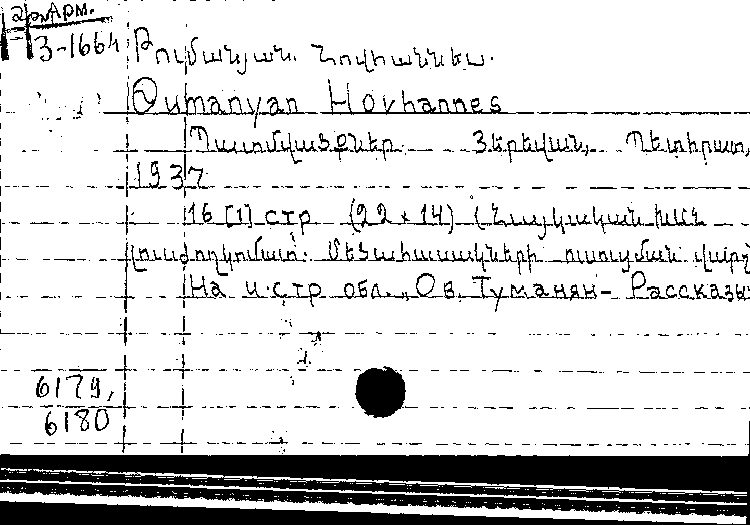 др. Арм.
3-1664 Թումանյան Հովհաննես.
Թumanyan Hovhannes
Պատմվածքներ Յերևան, Պետհրատ,
1937
16 [1] стр (22 x 14) (Հայկական ԽՍՀ
լուսժողկոմատ. Մեծահասակների ուսուցման վարչ
На 4 стр обл. „Ов. Туманян - Рассказы
6179,
6180